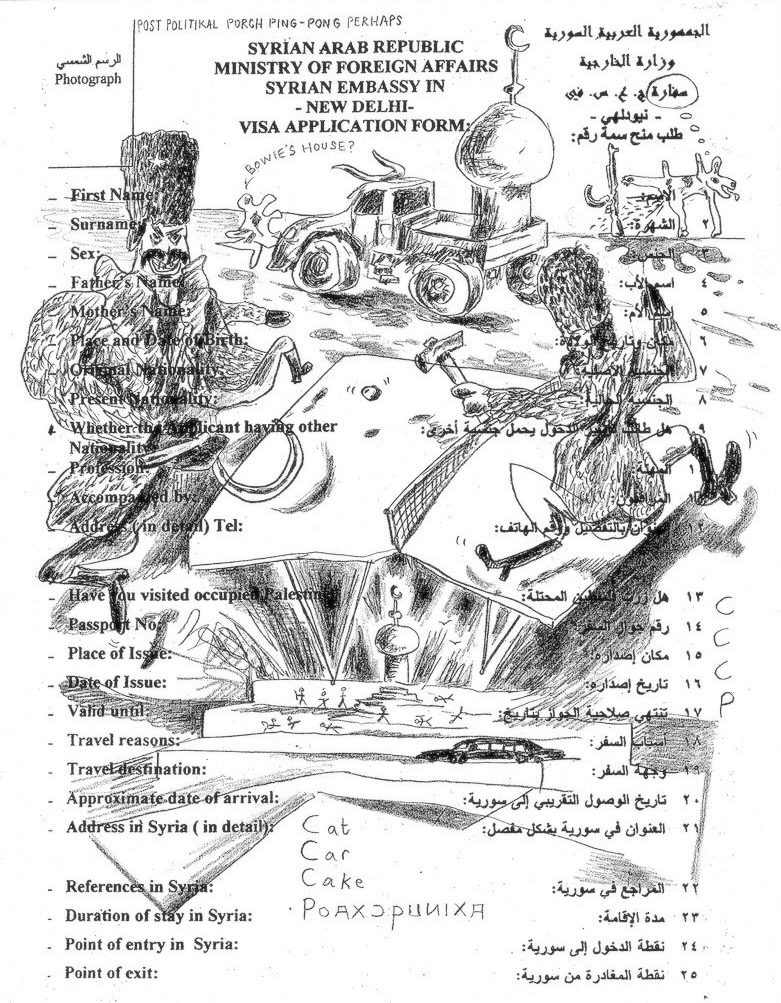 POST POLITIKAL PORCH PING-PONG PERHAPS
الرسم الشمسي
Photograph
SYRIAN ARAB REPUBLIC
MINISTRY OF FOREIGN AFFAIRS
SYRIAN EMBASSY IN
- NEW DELHI-
VISA APPLICATION FORM:
الجمهورية العربية السورية
وزارة الخارجية
سفارة ج. ع. س. في
- نيودلهي -
طلب منح سمة رقم:
BOWIE'S HOUSE?
- First Name:
- Surname: الشهرة: ٢
- Sex: الجنس: ٣
- Father's Name: اسم الأب: ٤
- Mother's Name: اسم الأم: ٥
- Place and Date of Birth: مكان وتاريخ الولادة: ٦
- Original Nationality: الجنسية الأصلية: ٧
- Present Nationality: الجنسية الحالية: ٨
- Whether the Applicant having other هل طالب الدخول يحمل جنسية أخرى: ٩
Nationality:
- Profession: المهنة:
- Accompanied by: المرافقون:
- Address ( in detail) Tel: العنوان بالتفصيل ورقم الهاتف: ١٢
- Have you visited occupied Palestine: هل زرت فلسطين المحتلة: ١٣
- Passport No: رقم جواز السفر: ١٤
- Place of Issue: مكان إصداره: ١٥
- Date of Issue: تاريخ إصداره: ١٦
- Valid until: تنتهي صلاحية الجواز بتاريخ: ١٧
C
C
C
P
- Travel reasons: أسباب السفر: ١٨
- Travel destination: وجهة السفر: ١٩
- Approximate date of arrival: تاريخ الوصول التقريبي إلى سورية: ٢٠
- Address in Syria ( in detail): العنوان في سورية بشكل مفصل: ٢١
Cat
Car
Cake
- References in Syria: المراجع في سورية: ٢٢
- Duration of stay in Syria: مدة الإقامة: ٢٣
- Point of entry in Syria: نقطة الدخول إلى سورية: ٢٤
- Point of exit: نقطة المغادرة من سورية: ٢٥